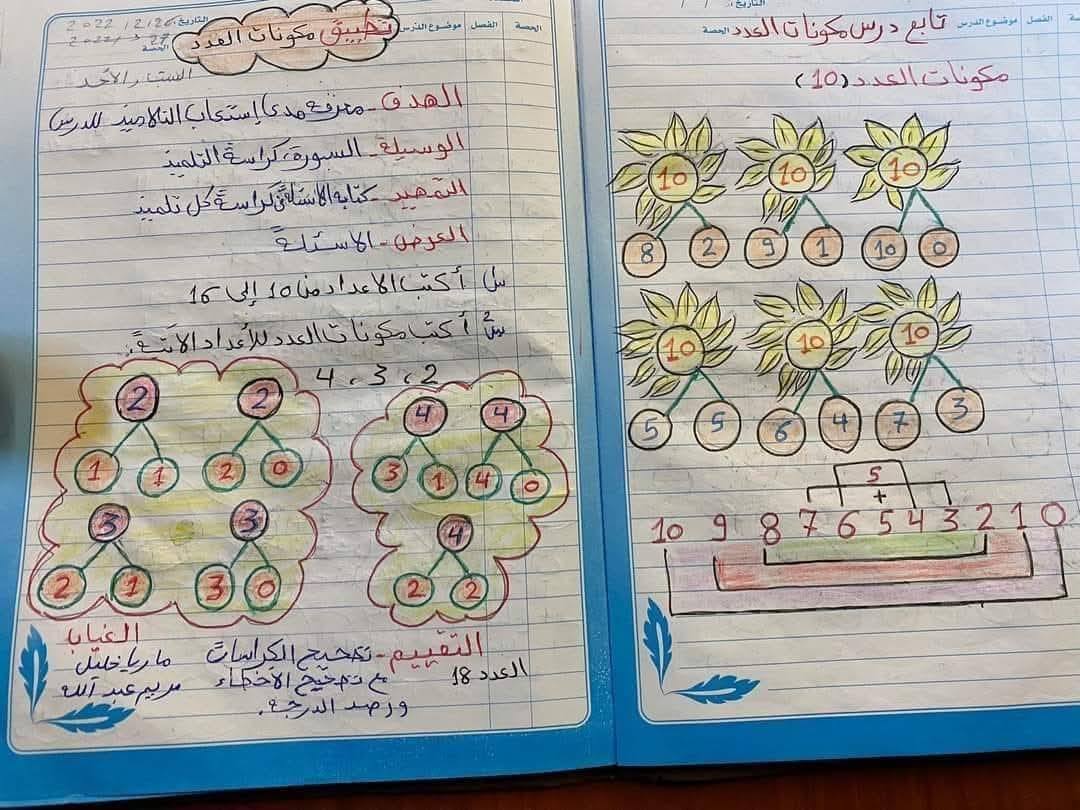 التاريخ:
الحصة الفصل موضوع الدرس تابع درس مكونات العدد الحصة
مكونات العدد (10)
10 10 10
8 2 9 1 10 0
10 10 10
5 5 6 4 7 3
5
+
10 9 8 7 6 5 4 3 2 1 0
التاريخ: 2022/12/26
الحصة الفصل موضوع الدرس تطبيق مكونات العدد الحصة
الأحد
الهدف - معرفة مدى إستعاب التلاميذ للدرس
الوسيلة - السبورة، كراسة التلميذ
التمهيد - كتابة الاسئلة في كراسة كل تلميذ
العرض - الاسئلة
س1 أكتب الاعداد من 10 إلى 16
س2 أكتب مكونات العدد للأعداد الآتية.
2 ، 3 ، 4
2 2
1 1 2 0
3 3
2 1 3 0
4 4
3 1 4 0
4
2 2
التقييم - تصحيح الكراسات
مع تصحيح الأخطاء
ورصد الدرجة.
العدد 18
الغياب
ماريا خليل
مريم عبد الله